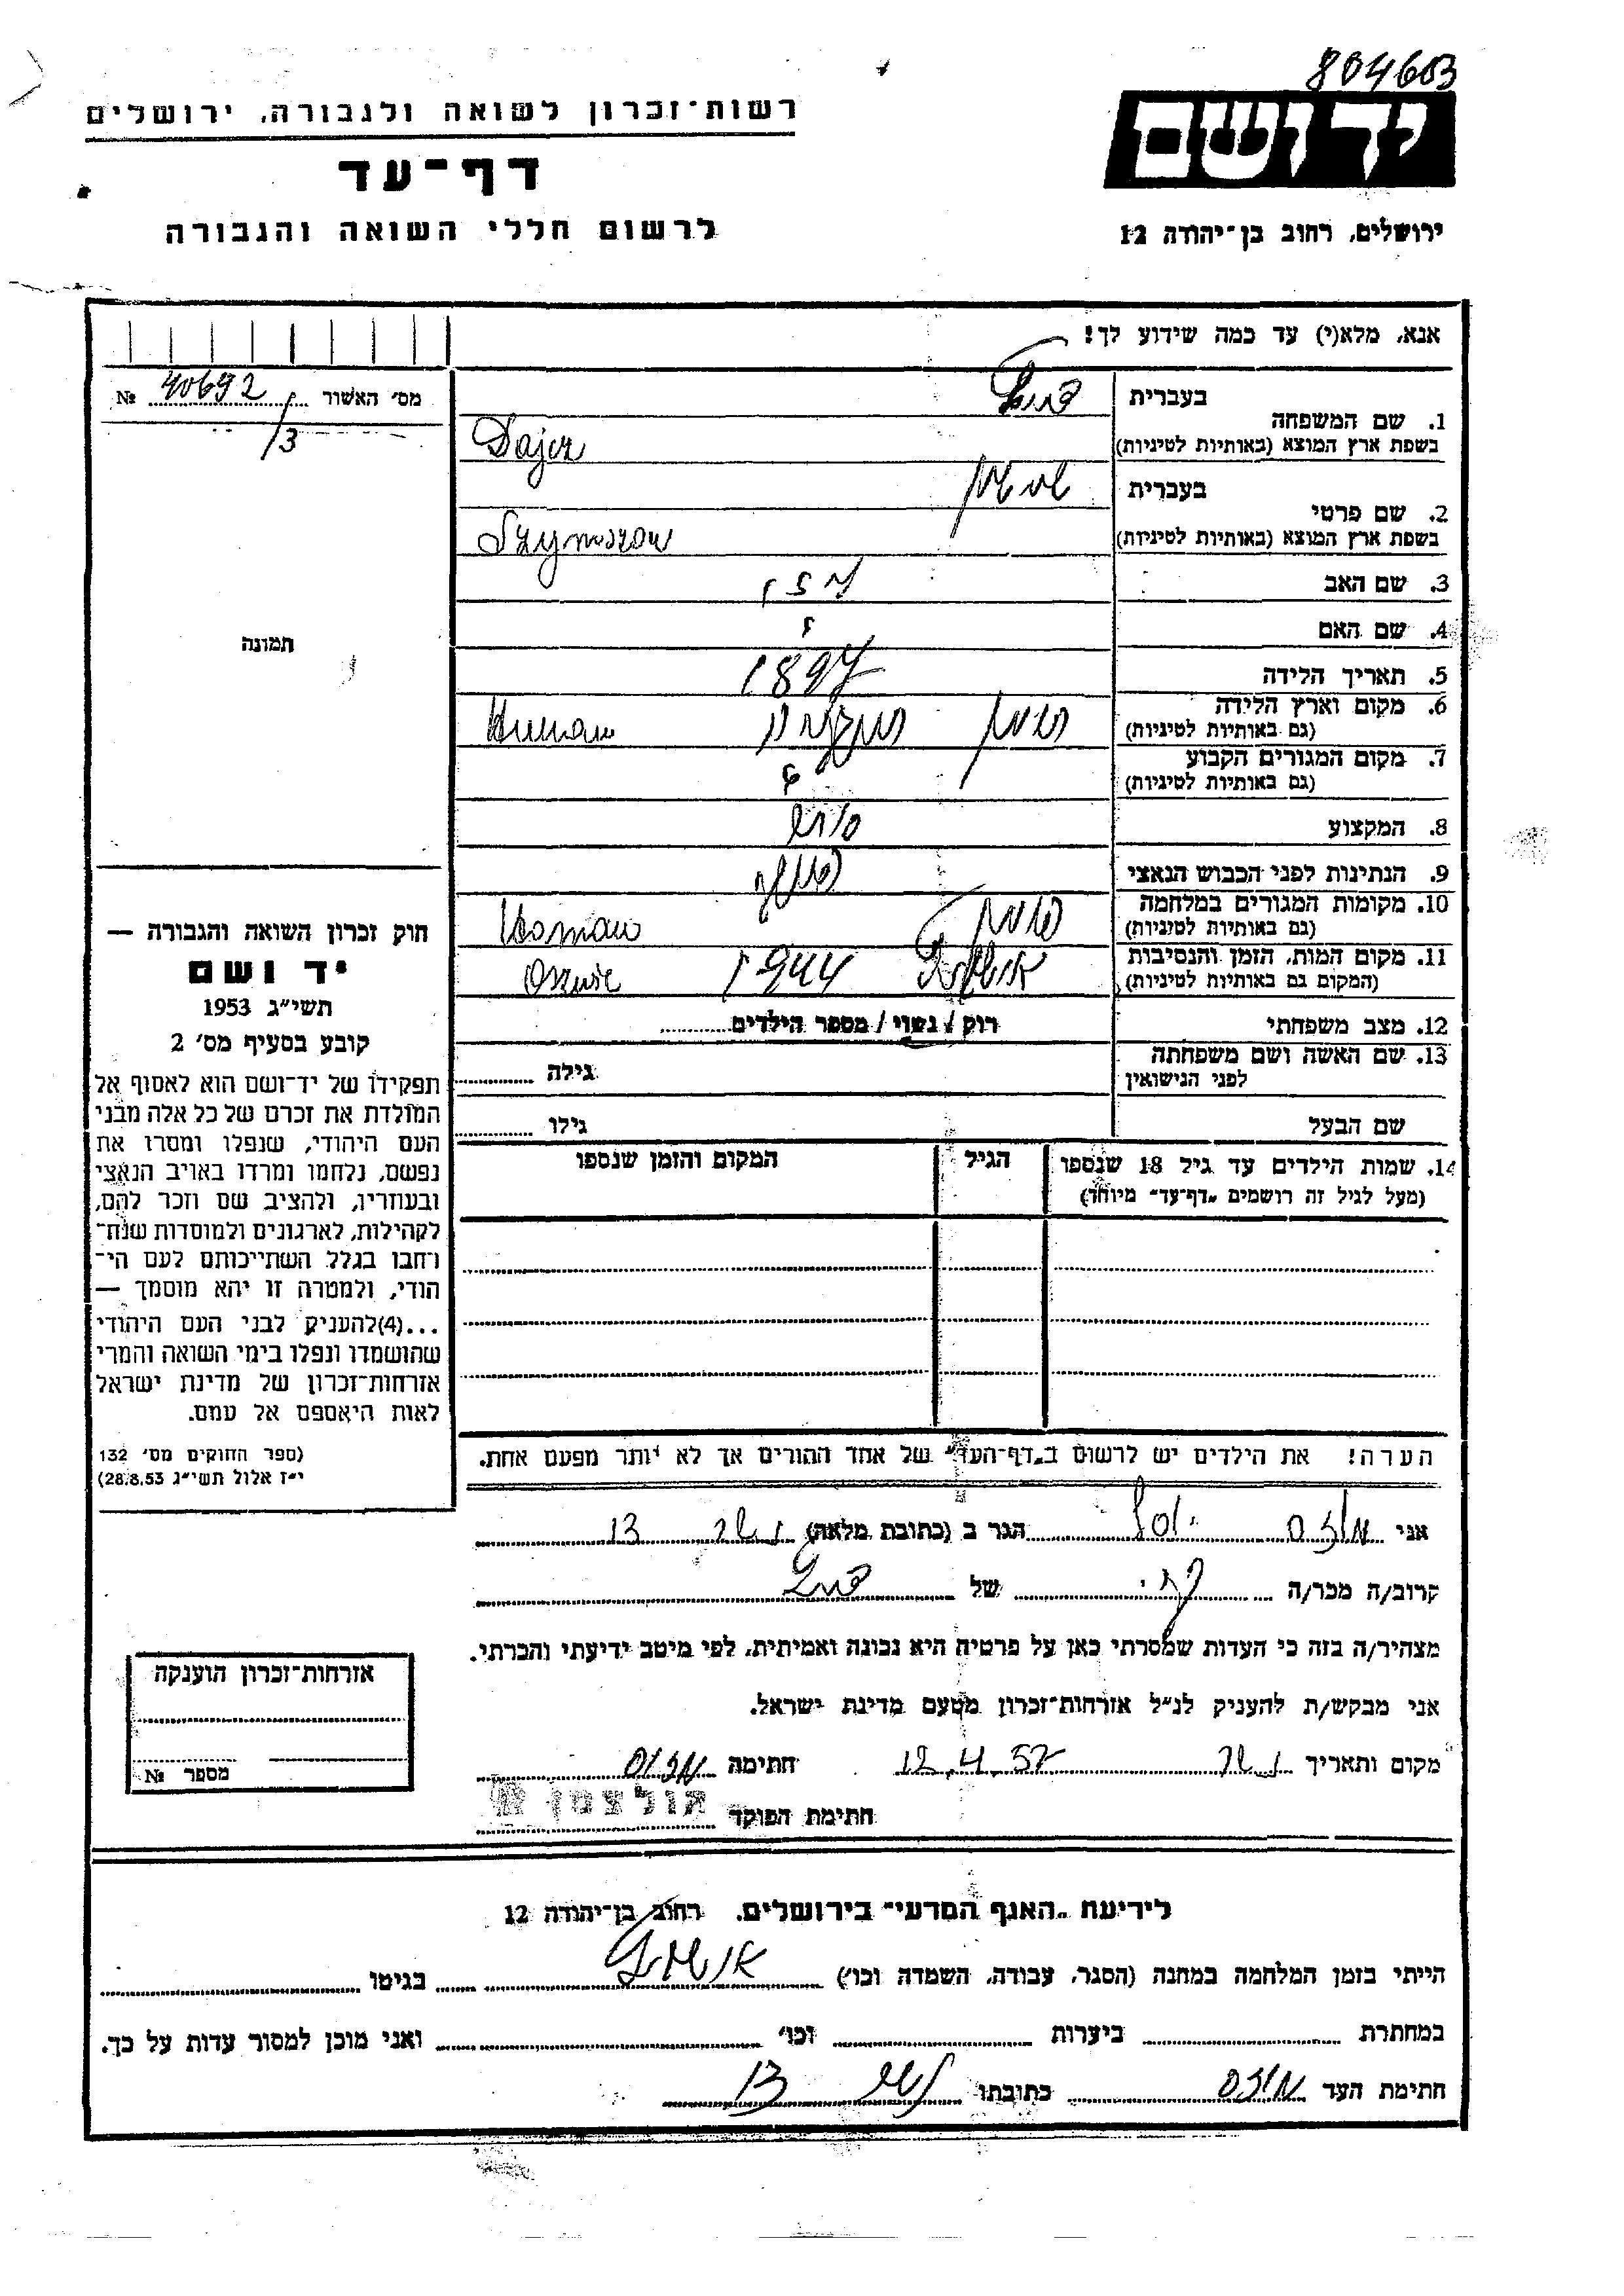 804603
רשות־זכרון לשואה ולגבורה, ירושלים
ידושם
דף־עד
ירושלים, רחוב בן־יהודה 12
לרשום חללי השואה והגבורה
אנא, מלא(י) עד כמה שידוע לך!
מס׳ האשור 40692 №
/3
1. שם המשפחה
בעברית
בשפת ארץ המוצא (באותיות לטיניות) Dajcz
2. שם פרטי
בעברית
בשפת ארץ המוצא (באותיות לטיניות)
3. שם האב
4. שם האם
5. תאריך הלידה 1897
6. מקום וארץ הלידה
(גם באותיות לטיניות)
7. מקום המגורים הקבוע
(גם באותיות לטיניות)
8. המקצוע
9. הנתינות לפני הכבוש הנאצי
10. מקומות המגורים במלחמה
(גם באותיות לטיניות)
11. מקום המות, הזמן והנסיבות 1944
(המקום גם באותיות לטיניות)
12. מצב משפחתי רווק / נשוי / מספר הילדים
13. שם האשה ושם משפחתה
לפני הנישואין גילה
שם הבעל גילו
14. שמות הילדים עד גיל 18 שנספו הגיל המקום והזמן שנספו
(מעל לגיל זה רושמים „דף־עד״ מיוחד)
הערה! את הילדים יש לרשום ב„דף־העד״ של אחד ההורים אך לא יותר מפעם אחת.
תמונה
חוק זכרון השואה והגבורה —
יד ושם
תשי״ג 1953
קובע בסעיף מס׳ 2
תפקידו של יד־ושם הוא לאסוף אל
המולדת את זכרם של כל אלה מבני
העם היהודי, שנפלו ומסרו את
נפשם, נלחמו ומרדו באויב הנאצי
ובעוזריו, ולהציב שם וזכר להם,
לקהילות, לארגונים ולמוסדות שנח־
רחבו בגלל השתייכותם לעם הי־
הודי, ולמטרה זו יהא מוסמך —
...(4)להעניק לבני העם היהודי
שהושמדו ונפלו בימי השואה והמרי
אזרחות־זכרון של מדינת ישראל
לאות היאספם אל עמם.
(ספר החוקים מס׳ 132
י״ז אלול תשי״ג 28.8.53)
אני הגר ב (כתובת מלאה) 13
קרוב/ה מכר/ה של
מצהיר/ה בזה כי העדות שמסרתי כאן על פרטיה היא נכונה ואמיתית, לפי מיטב ידיעתי והכרתי.
אני מבקש/ת להעניק לנ״ל אזרחות־זכרון מטעם מדינת ישראל.
מקום ותאריך 12.4.57 חתימה
חתימת הפוקד
אזרחות־זכרון הוענקה
מספר №
לידיעת „האגף המדעי״ בירושלים, רחוב בן־יהודה 12
הייתי בזמן המלחמה במחנה (הסגר, עבודה, השמדה וכו׳) בגיטו
במחתרת ביערות וכו׳ ואני מוכן למסור עדות על כך.
חתימת העד כתובתו 13